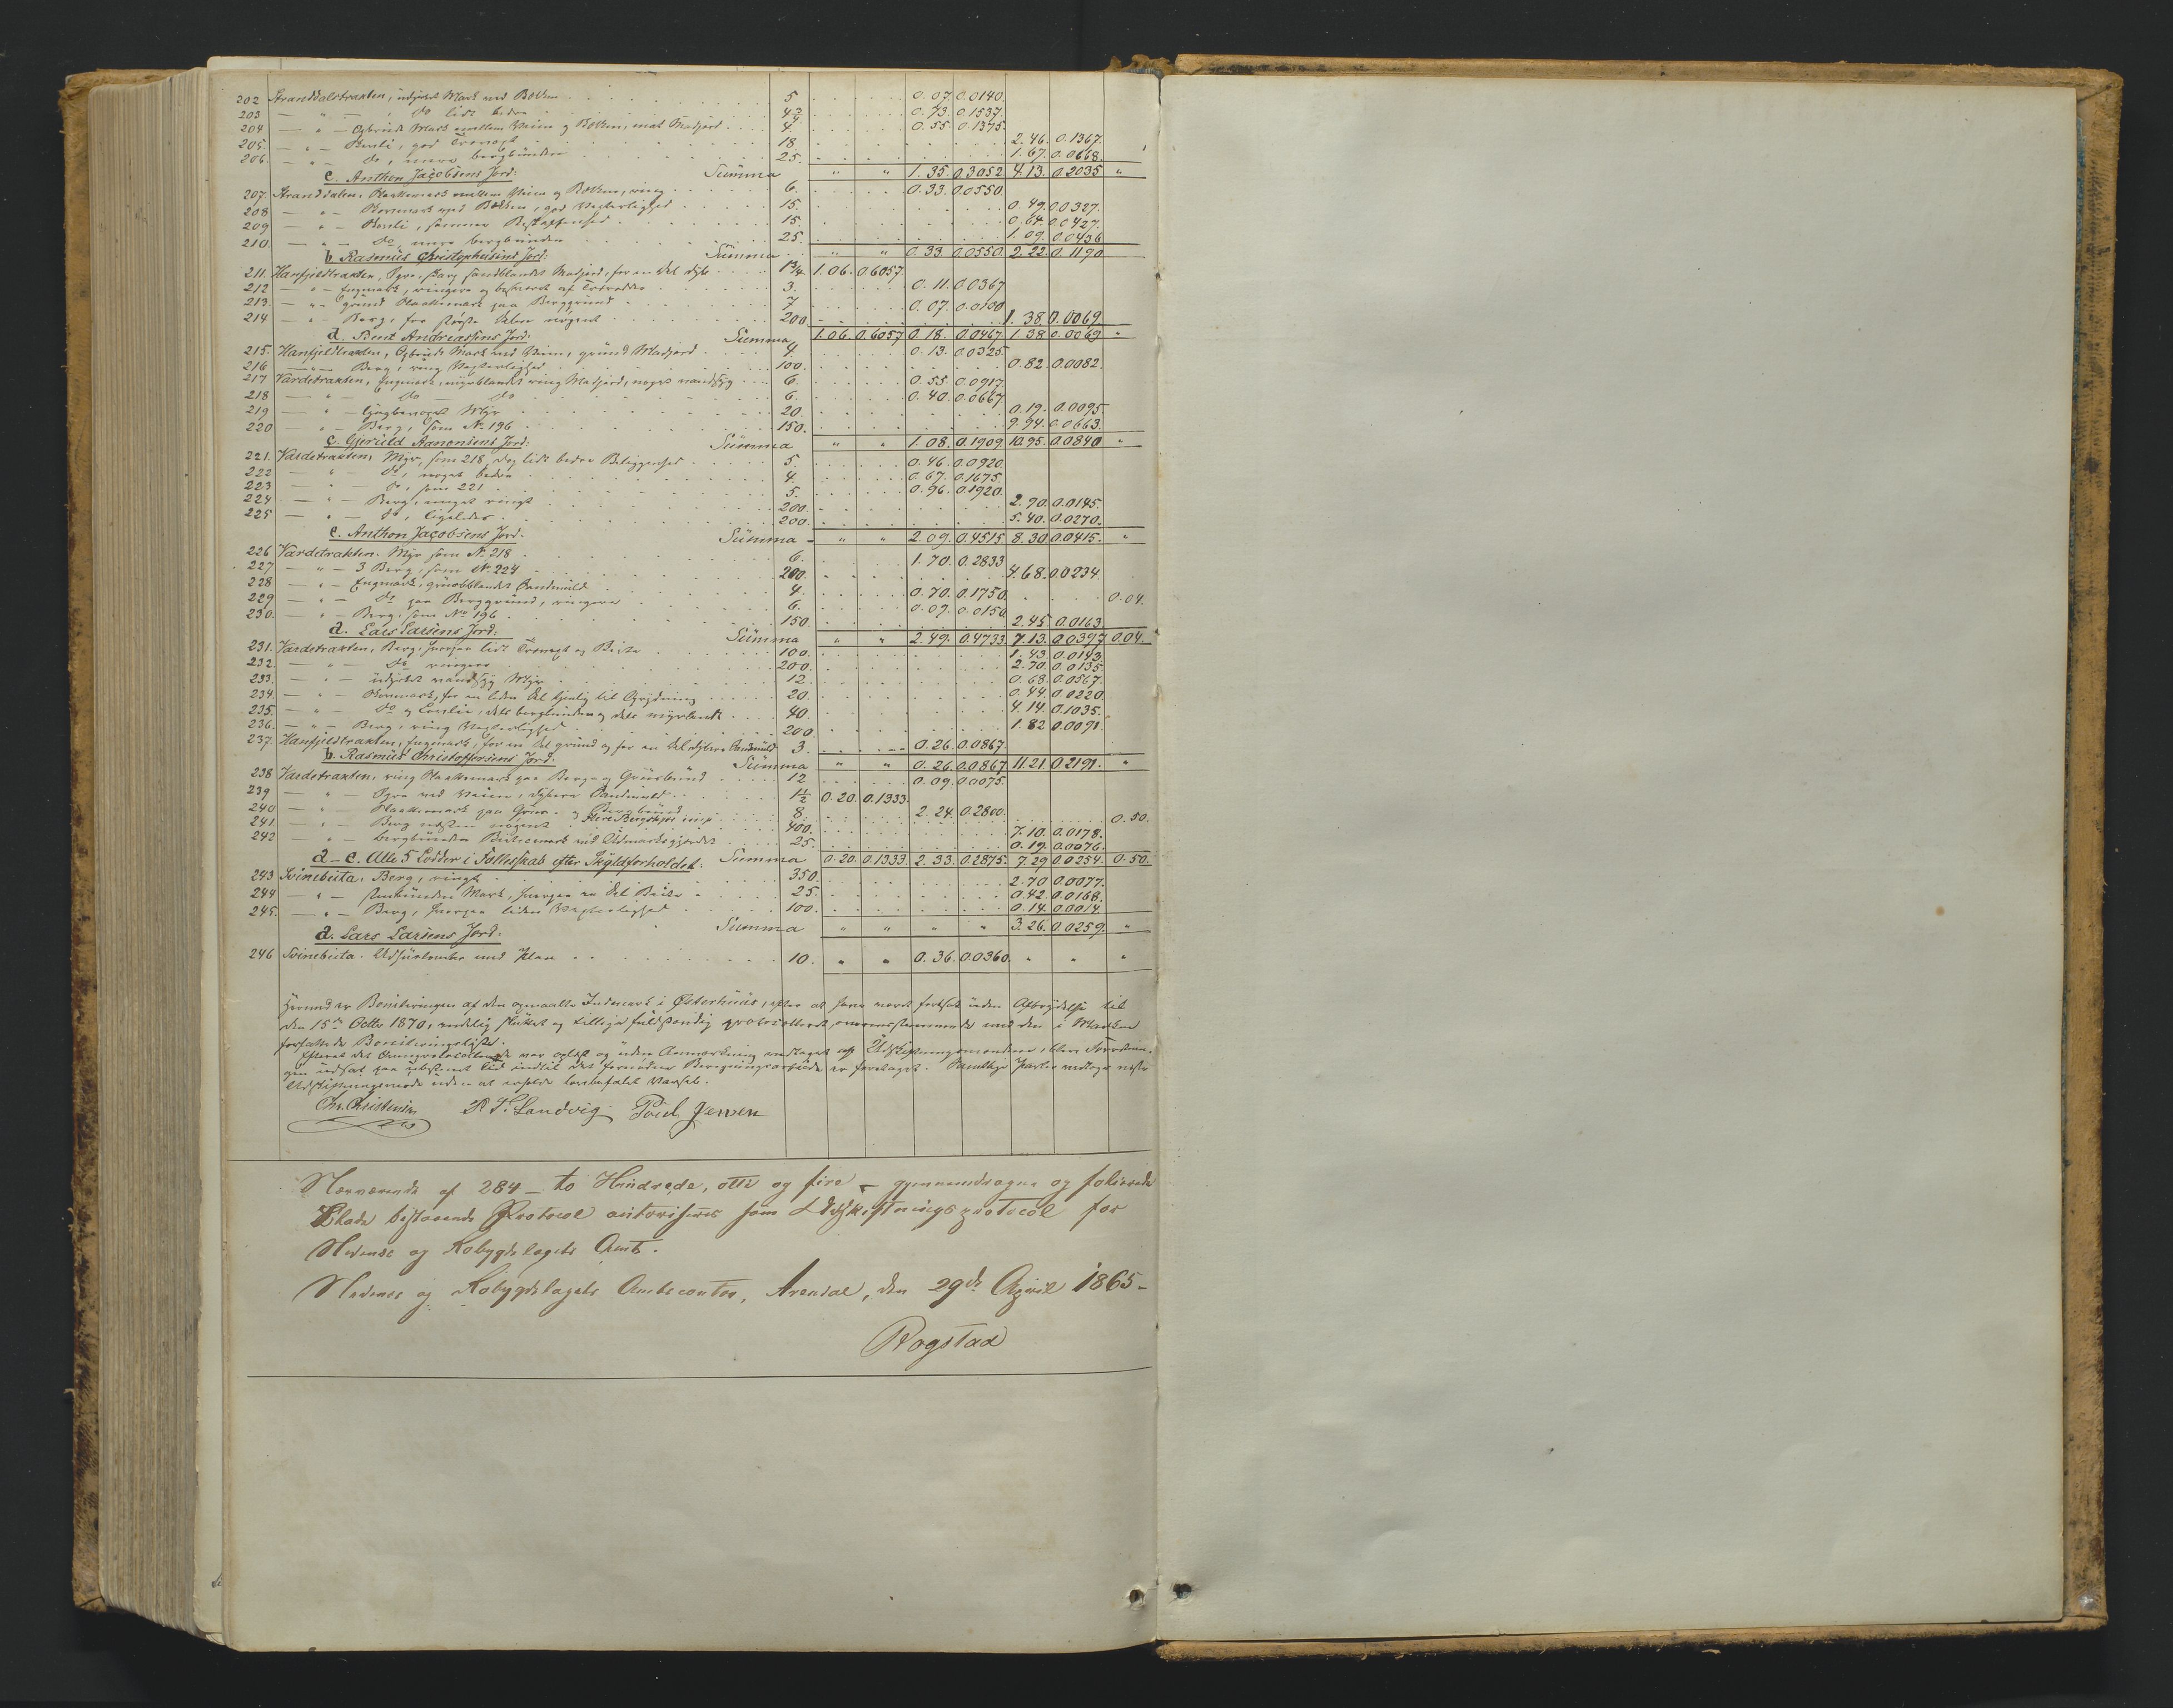 202 Stranddalstrakten, udyrket Mark ved Bækken 5 0.07. 0.0140.
203 — " — do lidt bedre 4¾ 0.73. 0.1537.
204 — " — Opbrudt Mark mellem Veien og Bækken, mat Madjord 4. 0.55. 0.1375.
205. — " — Benli, god 18. 2.46. 0.1367.
206. — " — do, mere bergbunden 25. 1.67. 0.0668.
e. Anthon Jacobsens Jord: Summa " " 1.35. 0.3052 4.13. 0.2035 "
207. Stranddalen, Hakkemark mellem Veien og Bækken, ring 6. 0.33. 0.0550
208 — " — ved Bækken, god Væxterlighed 15. 0.49. 0.0327.
209 — " — Benli, samme Beskaffenhed 15. 0.64. 0.0427.
210. — " — do, mere bergbunden 25. 1.09. 0.0436
b. Rasmus Christophersens Jord: Summa " " 0.33. 0.0550. 2.22. 0.1190
211. Hanfjeldtrakten, Ager, sandblandet Madjord, for en Del dyb 1¾ 1.06. 0.6057.
212 — " — Engmark, ringere og beskaaret af 3. 0.11. 0.0367
213. — " — grund Hakkemark paa Berggrund 7 0.07. 0.0100
214 — " — Berg, for største Delen nøgent 200 1.38. 0.0069
d. Bent Andreassens Jord: Summa 1.06. 0.6057 0.18. 0.0467. 1.38 0.0069 "
215. Hanfjeldtrakten, Opbrudt Mark ved Veien, grund Madjord 4. 0.13. 0.0325.
216 — " — Berg, ring Væxterlighed 100. 0.82. 0.0082.
217 Vardetrakten, Engmark, myrblandet ring Madjord, noget vandsyg 6. 0.55. 0.0917.
218 — " — do — do 6. 0.40. 0.0667.
219 — " — Myr 20. 0.19. 0.0095.
220 — " — Berg, som No 196 150. 9.94. 0.0663.
c. Gjeruld Aanonsens Jord: Summa " " 1.08. 0.1909. 10.95. 0.0840 "
221. Vardetrakten, Myr, som 218, dog lidt bedre Beliggenhed 5. 0.46. 0.0920.
222 — " — do, noget bedre 4. 0.67. 0.1675.
223 — " — do, som 221 5. 0.96. 0.1920.
224 — " — Berg, meget ringt 200. 2.90. 0.0145.
225 — " — do, ligeledes 200. 5.40. 0.0270.
e. Anthon Jacobsens Jord. Summa " " 2.09. 0.4515 8.30. 0.0415. "
226 Vardetrakten. Myr som No 218 6. 1.70. 0.2833
227 — " — 3 Berg, som No 224 200. 4.68. 0.0234.
228 — " — Engmark, gruusblandet Sandmuld 4. 0.70. 0.1750.
229 — " — do paa Berggrund, ringere 6. 0.09. 0.0150 0.04.
230. — " — Berg, som No 196 150. 2.45. 0.0163
a. Lars Larsens Jord: Summa " " 2.49. 0.4733. 7.13. 0.0397 0.04.
231. Vardetrakten, Berg, hvorpaa lidt og Beite 100. 1.43. 0.0143.
232. — " — do ringere 200. 2.70. 0.0135.
233. — " — udyrket vandsyg Myr 12. 0.68. 0.0567.
234. — " — for en liden Del tjenlig til Oprydning 20. 0.44. 0.0220.
235. — " — do og Benlie, dels bergbunden og dels myrlændt 40. 4.14. 0.1035.
236. — " — Berg, ring Væxterlighed 200. 1.82 0.0091.
237. Hanfjeldtrakten, Engmark, for en Del grund og for en Del dybere Sandmuld 3. 0.26. 0.0867.
b. Rasmus Christoffersens Jord. Summa " " 0.26. 0.0867 11.21. 0.2191. "
238 Vardetrakten, ring Hakkemark paa Berg- og Gruusbund 12 0.09. 0.0075.
239 — " — Ager ved Veien, dybere Sandmuld 1½ 0.20. 0.1333.
240 — " — Hakkemark paa Gruus- og Bergbund 8. 2.24. 0.2800.
241. — " — Berg næsten nøgent 400. 7.10. 0.0178. 0.50.
242 — " — bergbunden Beitemark ved Udmarksgjerdet 25. 0.19. 0.0076.
a-e. Alle 5 Lodder i Fællesskab efter Skyldforholdet: Summa 0.20. 0.1333. 2.33. 0.2875. 7.29 0.0254. 0.50.
243 Svinebeita, Berg, ringt 350. 2.70 0.0077.
244 — " — Mark, hvorpaa en Del Beite 25. 0.42. 0.0168.
245. — " — Berg, hvorpaa liden Væxterlighed 100. 0.14. 0.0014
a. Lars Larsens Jord. Summa " " " " 3.26. 0.0259. "
246 Svinebeita. med 10. " " 0.36. 0.0360. " " "
Hermed er Boniteringen af den opmaalte Indmark i Østerhuus, efter at have været fortsat uden Afbrydelse til
den 15de Octbr 1870, endelig sluttet og tillige fuldstændig protocolleret, overensstemmende med den i Marken
forfattede Boniteringsliste.
Efterat det Oenprotocollerede var oplæst og uden Anmærkning vedtaget af Udskiftningsmændene, blev Forretnin-
gen udsat paa ubestemt Tid indtil det fornødne Beregningsarbeide er foretaget. Samtlige Parter vedtage møde
Udskiftningsmøde uden at erholde lovbefalet Varsel.
Chr. Christensen P. T. Sandvig Poul Jensen
Nærværende af 284 — to Hundrede, otti og fire — gjennemdragne og folierede
Blade bestaaende Protocol autoriseres som Udskiftningsprotocol for
Nedenes og Robygdelagets Amt.
Nedenes og Robygdelagets Amtscontor, Arendal, den 29de April 1865 —
Rogstad